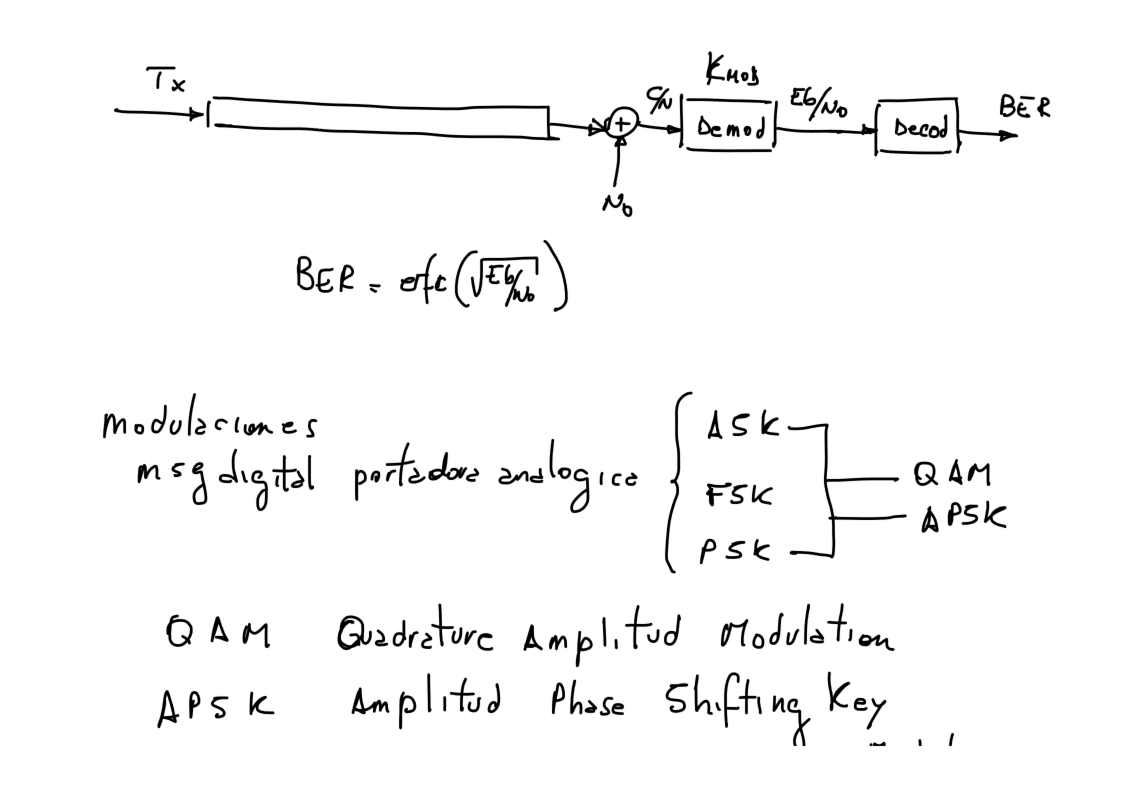 Tx
KMOD
C/N
Demod
Eb/No
Decod
BER
+
No
BER = erfc(√Eb/No)
modulaciones
msg digital portadora analogica
ASK
FSK
PSK
QAM
APSK
QAM Quadrature Amplitud Modulation
APSK Amplitud Phase Shifting Key